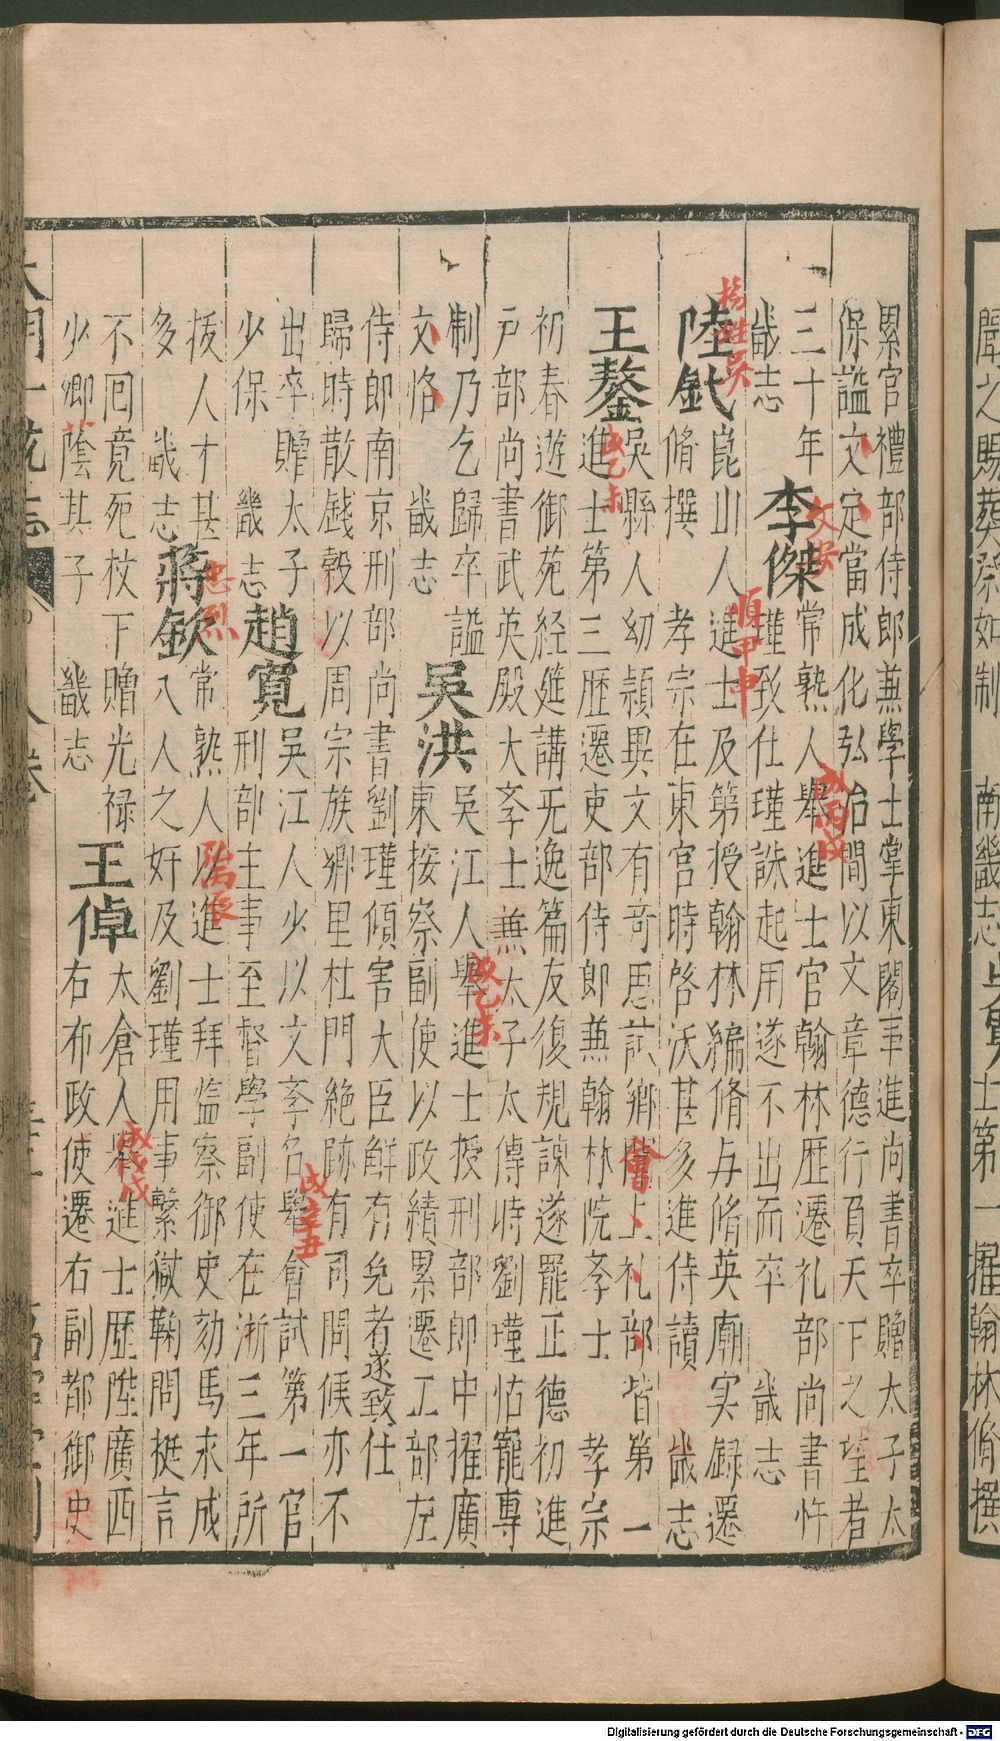 累官禮部侍郎兼學士掌東閣事進尚書卒贈太子太
保謚文定當成化弘治間以文章德行負天下之望者
三十年 李傑常熟人舉進士官翰林歷遷礼部尚書忤
畿志 瑾致仕瑾誅起用遂不出而卒 畿志
陸釴崑山人進士及第授翰林編脩与脩英廟实録遷
脩撰 孝宗在東宮時啓沃甚多進侍讀 畿志
王鏊吳縣人幼穎異文有奇思試鄉闈上礼部皆第一
進士第三歷遷吏部侍郎兼翰林院斈士 孝宗
初春遊御苑経筵講无逸篇友復規諌遂罷正德初進
戸部尚書武英殿大斈士兼太子太傅時劉瑾怙寵專
制乃乞歸卒謚 吳洪吳江人舉進士授刑部郎中擢廣
文恪 畿志 東按察副使以政績累遷工部左
侍郎南京刑部尚書劉瑾傾害大臣鮮有免者遂致仕
歸時散錢穀以周宗族鄉里杜門絶跡有司問候亦不
出卒贈太子 趙寬吳江人少以文斈名舉會試第一官
少保 畿志 刑部主事至督學副使在浙三年所
拔人才甚 蔣欽常熟人以進士拜監察御史劾馬永成
多 畿志 八人之奸及劉瑾用事繫獄鞫問挺言
不回竟死杖下贈光禄 王倬太倉人舉進士歷陞廣西
少卿蔭其子 畿志 右布政使遷右副都御史
文安
順甲申
成丙戌
成乙未
會
成乙未
成辛丑
忠烈
成戊戌
聞之賜葬祭如制 南畿志 第一擢翰林脩撰
Digitalisierung gefördert durch die Deutsche Forschungsgemeinschaft - DFG